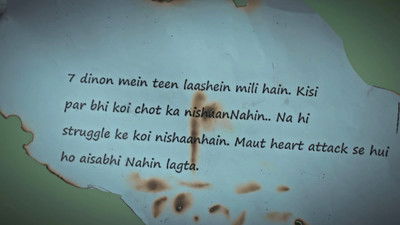 7 dinon mein teen laashein mili hain. Kisi
par bhi koi chot ka nishaanNahin.. Na hi
struggle ke koi nishaanhain. Maut heart attack se hui
ho aisabhi Nahin lagta.